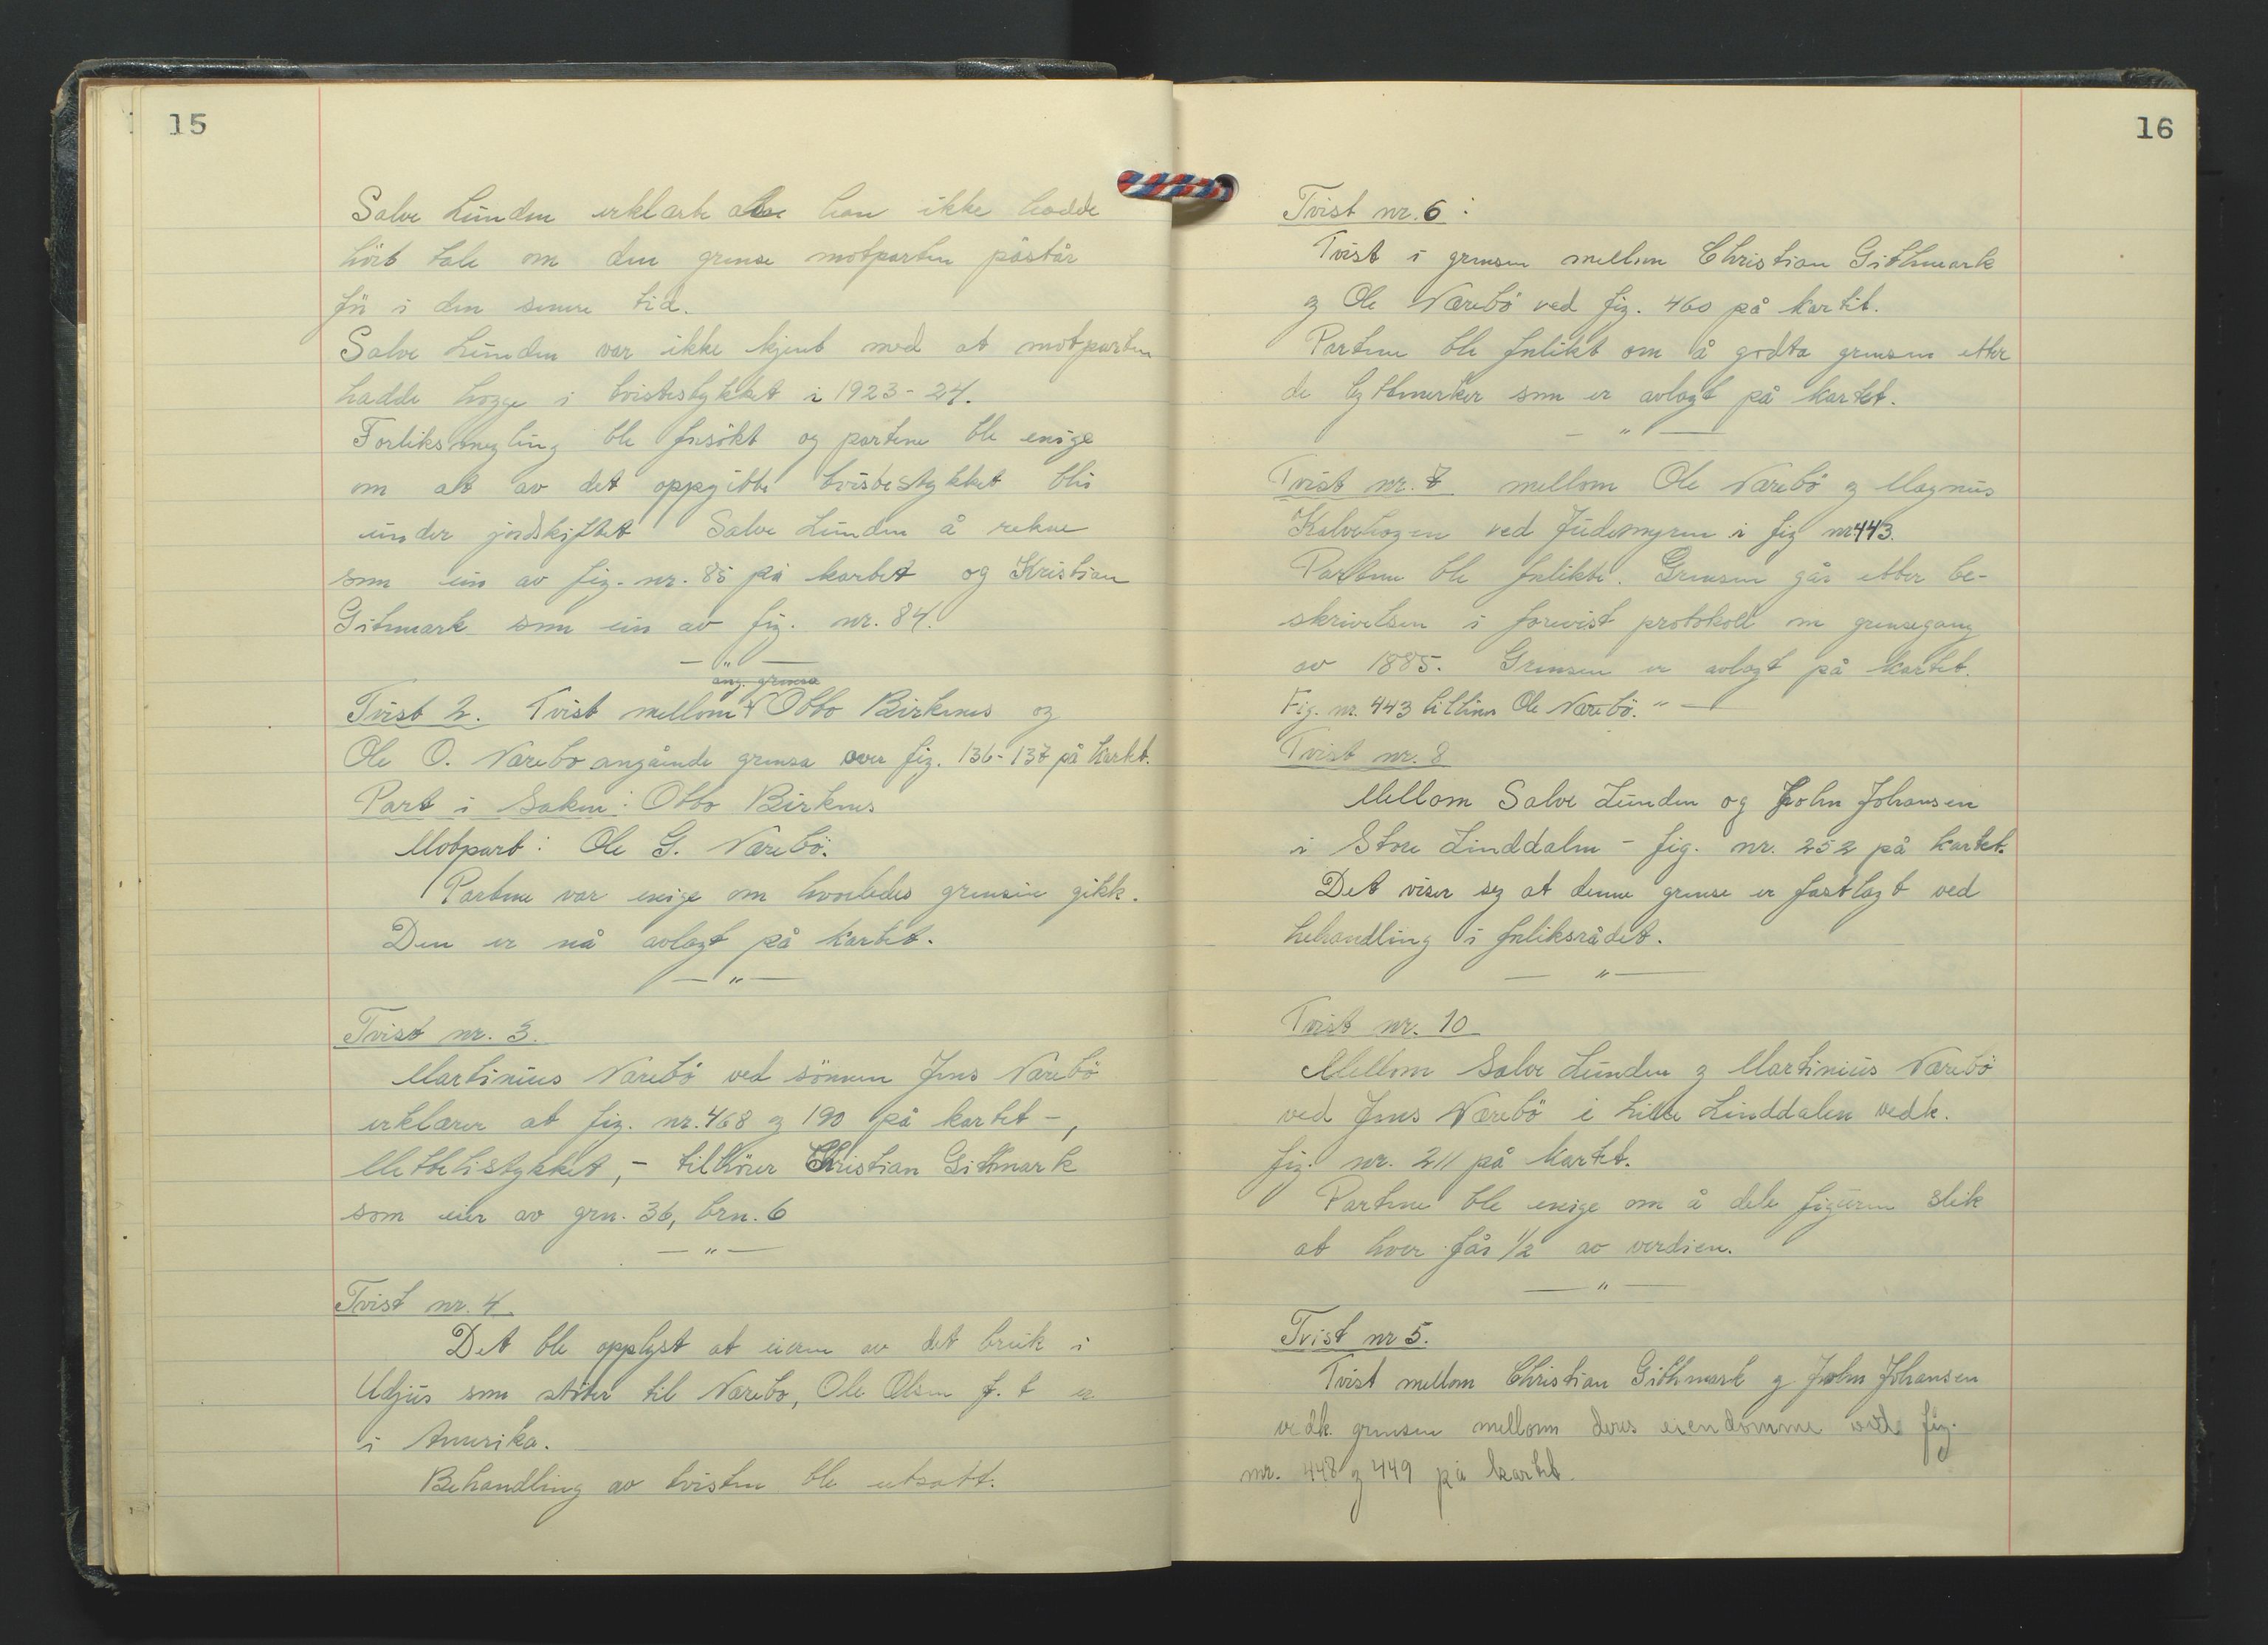 15
Salve Lunden erklærte at han ikke hadde
hört tale om den grense motparten påstår
før i den senere tid.
Salve Lunden var ikke kjent med at motparten
hadde hogge i tvistestykket i 1923-24.
Forliksmegling ble forsökt og partene ble enige
om at av det oppgitte tvistestykket blir
under jordskiftet Salve Lunden å rekne
som eier av fig. nr. 85 på kartet og Kristian
Gitmark som eier av fig. nr. 84.
— " —
ang. grensa
Tvist 2. Tvist mellom Otto Birkenes og
Ole O. Narebo angående grensa over fig. 136-137 på kartet.
Part i saken: Otto Birkenes
Motpart: Ole G. Narebö.
Partene var enige om hvorledes grensen gikk.
Den er nå avlagt på kartet.
— " —
Tvist nr. 3.
Martinius Narebö ved sönnen Jens Narebö
erklærer at fig. nr. 468 og 190 på kartet -,
Mettelistykket, - tilhörer Christian Gitmark
som eier av grn. 36, brn. 6
— " —
Tvist nr. 4.
Det ble opplyst at eieren av det bruk i
Udjus som stöter til Narebo, Ole Olsen f. t er
i Amerika.
Behandling av tvisten ble utsatt.
16
Tvist nr. 6:
Tvist i grensen mellom Christian Githmark
og Ole Narebö ved fig. 460 på kartet.
Partene ble forlikt om å godta grensen etter
de byttmerker som er avlagt på kartet.
— " —
Tvist nr. 7 mellom Ole Narebö og Magnus
Kalvehagen ved Judemyren i fig nr 443.
Partene ble forlikte. Grensen går etter be-
skrivelsen i forevist protokoll om grensegang
av 1885. Grensen er avlagt på kartet.
Fig. nr. 443 tilhører Ole Narebö. " —
Tvist nr. 8
Mellom Salve Lunden og John Johansen
i Store Linddalen - fig. nr. 252 på kartet.
Det viser seg at denne grense er fastlagt ved
behandling i forliksrådet.
— " —
Tvist nr. 10
Mellom Salve Lunden og Martinius Narebö
ved Jens Narebö i Lille Linddalen vedk.
fig. nr. 211 på kartet.
Partene ble enige om å dele figuren slik
at hver får 1/2 av verdien.
— " —
Tvist nr 5.
Tvist mellom Christian Githmark og John Johansen
vedk. grensen mellom deres eiendomme ved fig.
nr. 448 og 449 på kartet.